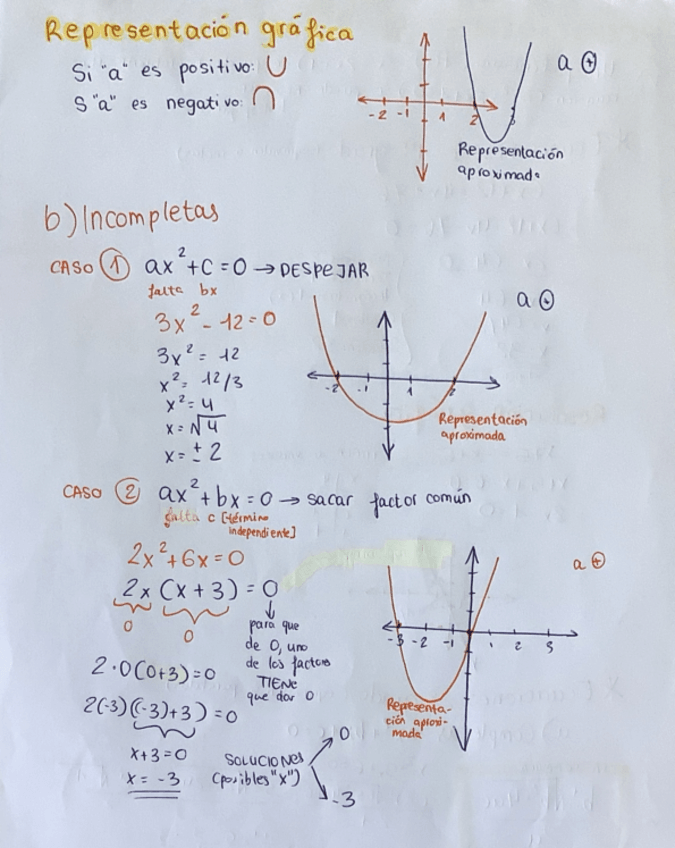 Representación gráfica
Si "a" es positivo: ∪
S "a" es negativo: ∩
a ⊕
-2 -1 1 2 3
Representación
aproximada
b) Incompletas
CASO ① ax² + c = 0 → DESPEJAR
falta bx
3x² - 12 = 0
3x² = 12
x² = 12/3
x² = 4
x = √4
x = ± 2
a ⊖
-2 -1 1 2
Representación
aproximada
CASO ② ax² + bx = 0 → sacar factor común
falta c [término
independiente]
2x² + 6x = 0
2x (x + 3) = 0
0 0
↓
para que
de 0, uno
de los factores
TIENE
que dar 0
2·0(0+3)=0
2(-3)((-3)+3) = 0
x+3=0
x = -3
SOLUCIONES
(posibles "x")
0
-3
a ⊕
-3 -2 -1 1 2 3
Representa-
ción aproxi-
mada